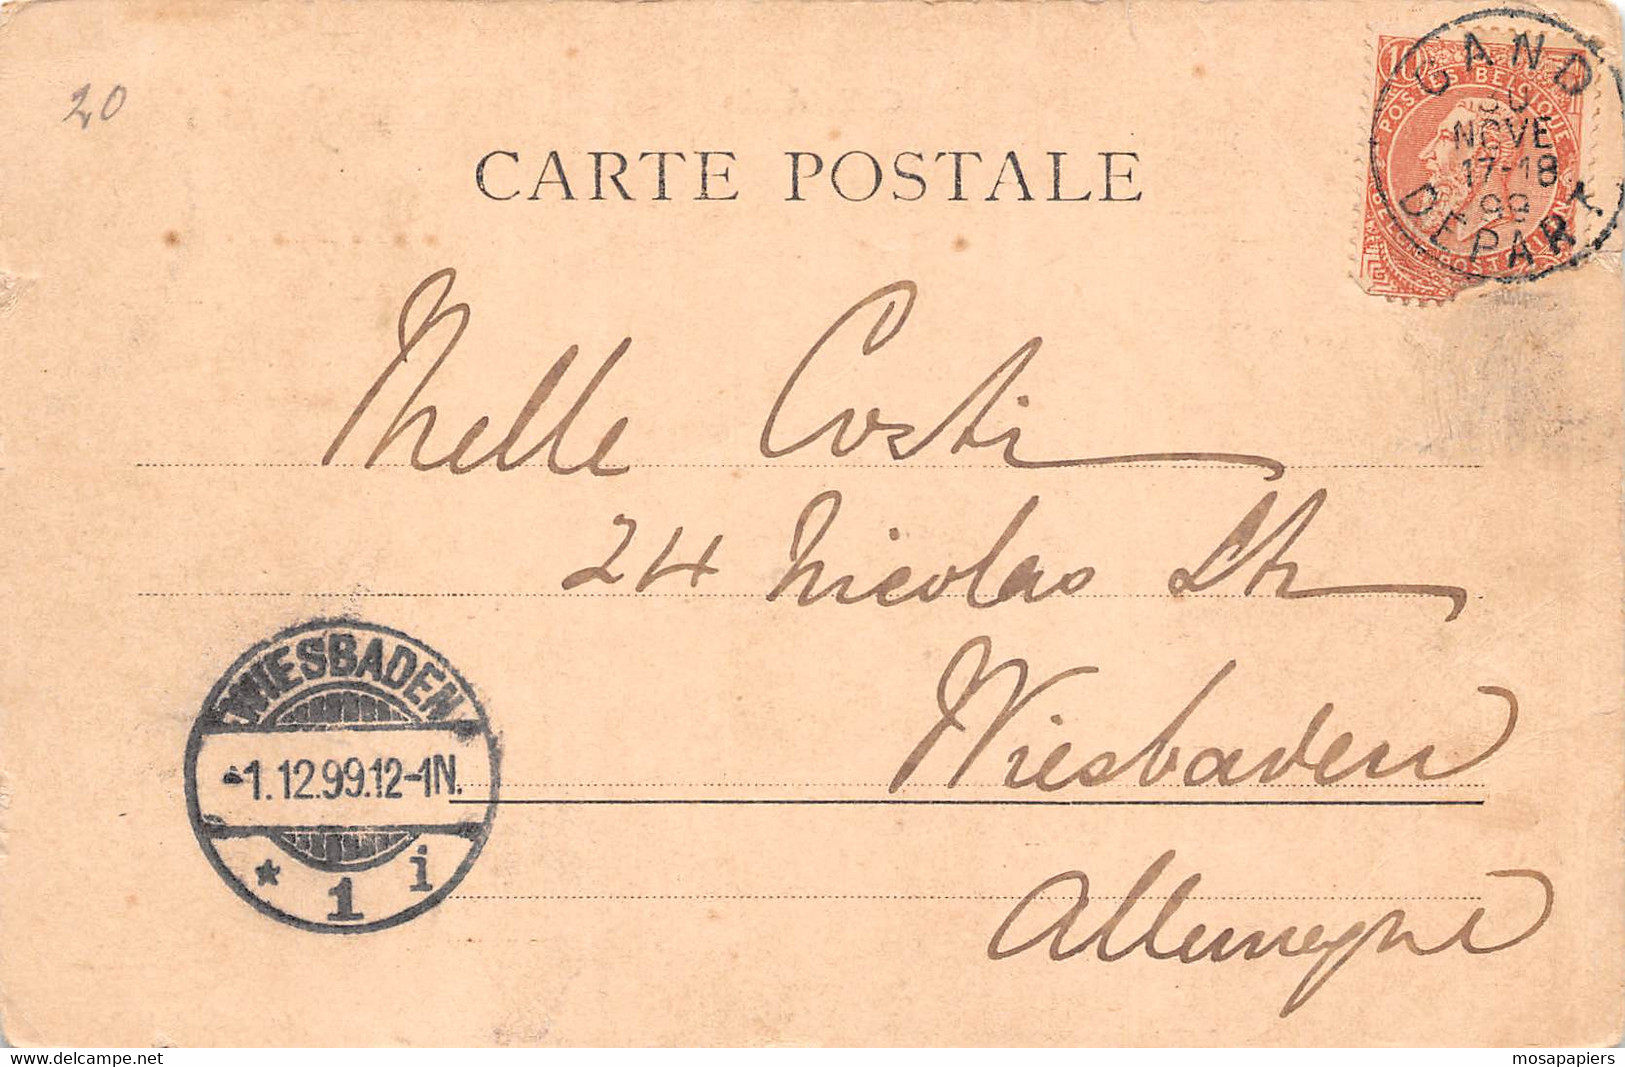 20
CARTE POSTALE
10
POSTES BELGIQUE
GAND
30
NOVE
17-18
99
DEPART
Melle Costi
24 Nicolas Str
Wiesbaden
Allemagne
WIESBADEN
-1.12.99.12-1N.
* 1 i
mosapapiers
www.delcampe.net